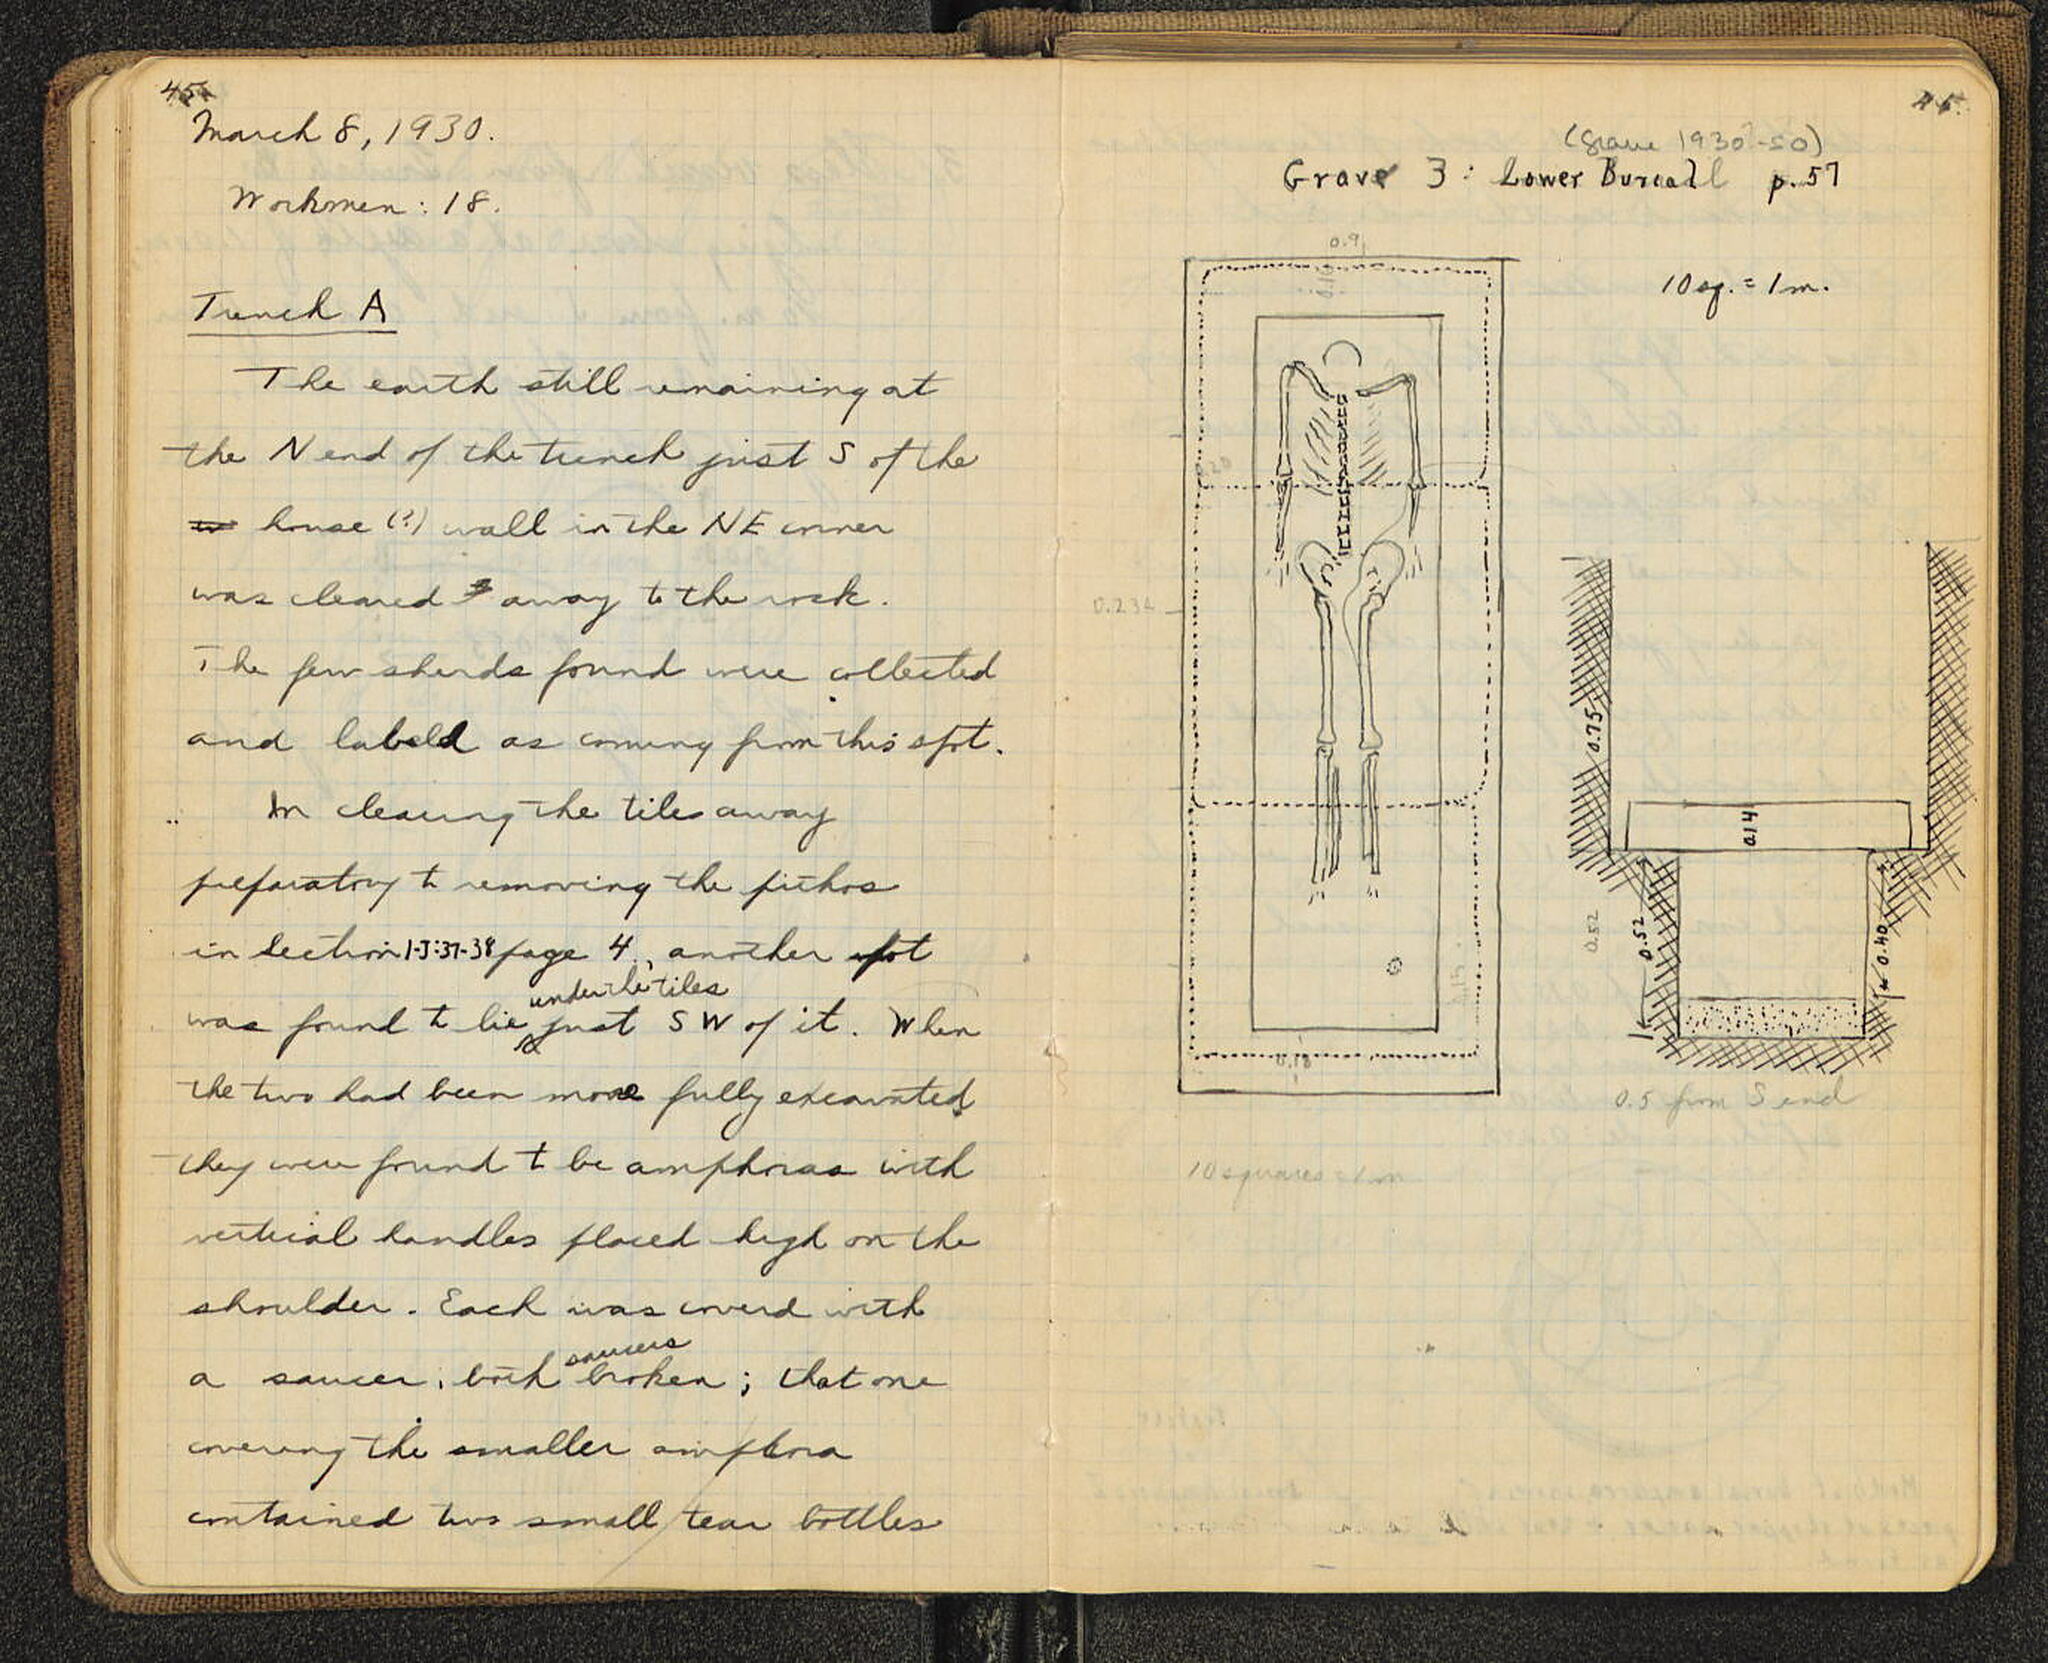 45a
March 8, 1930.
Workmen: 18.
Trench A
The earth still remaining at
the N end of the trench just S of the
house (?) wall in the NE corner
was cleared away to the rock.
The few sherds found were collected
and labeld as coming from this spot.
In clearing the tiles away
preparatory to removing the pithos
in section I-J:37-38 page 4, another pot
under the tiles
was found to lie just SW of it. When
the two had been more fully excavated
they were found to be amphoras with
vertical handles placed high on the
shoulder. Each was coverd with
saucers
a saucer, both broken; that one
covering the smaller amphora
contained two small tear bottles
45.
(Grave 1930-50)
Grave 3: Lower Buriall p. 57
10 sq. = 1 m.
0.9
0.234
0.18
0.15
0.75
0.14
0.52
0.52
0.40
0.5 from S end
10 squares = 1 m